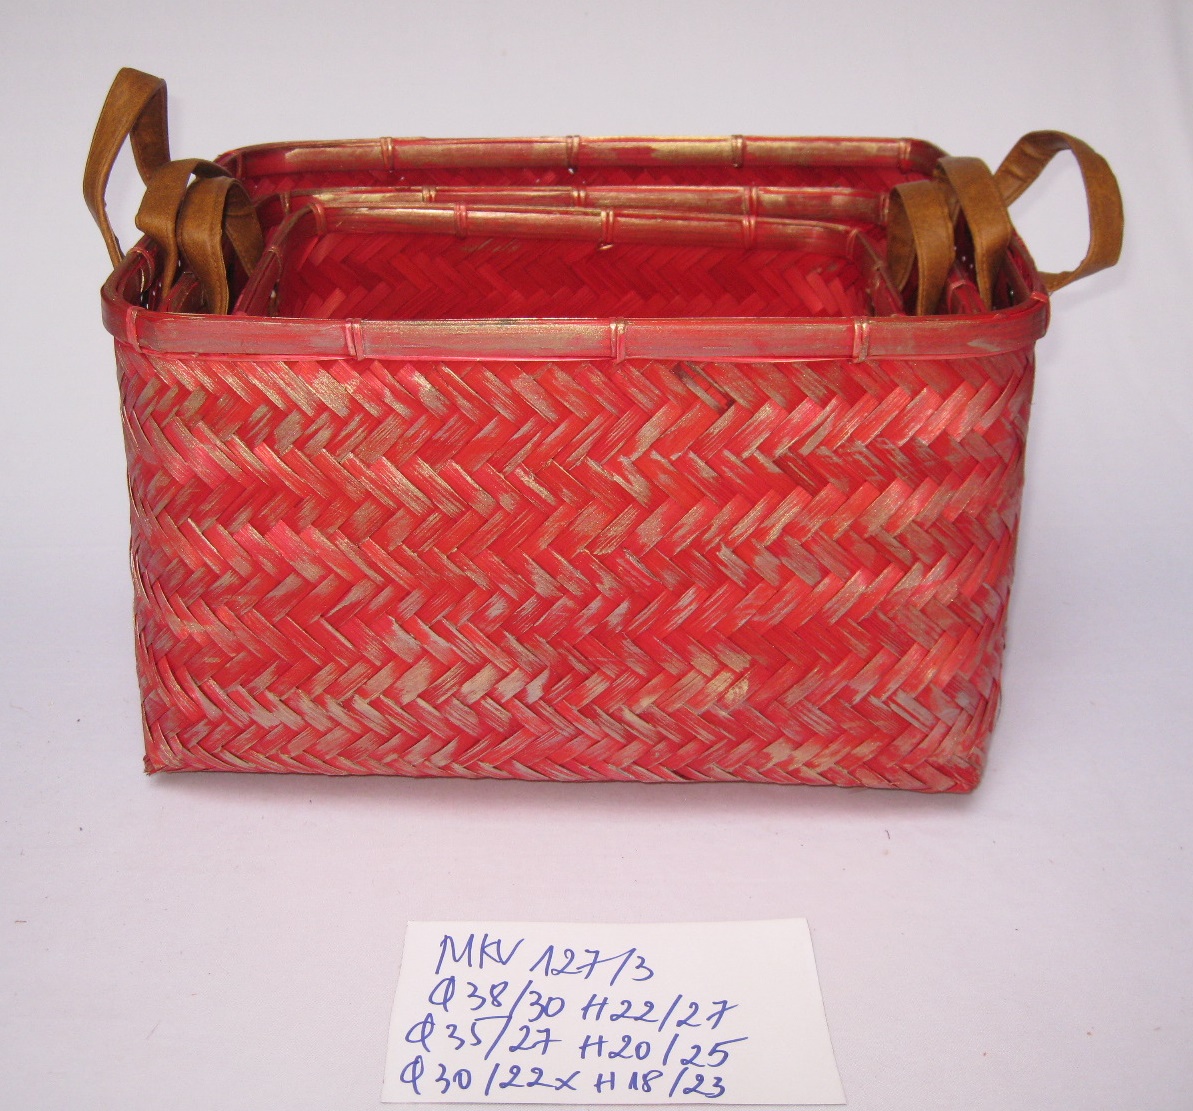 MKV 127/3
Φ38/30 H22/27
Φ35/27 H20/25
Φ30/22x H18/23